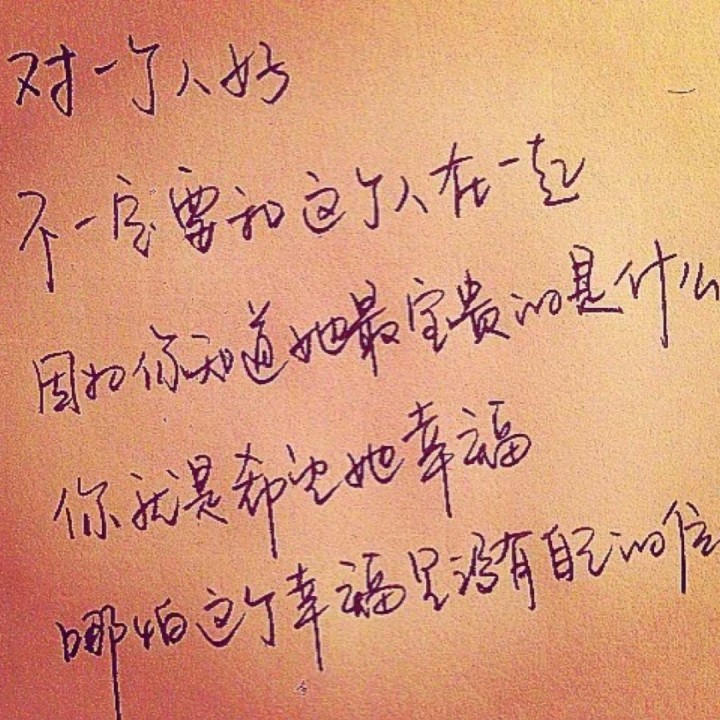 对一个人好
不一定要和这个人在一起
因为你知道她最宝贵的是什么
你就是希望她幸福
哪怕这个幸福里没有自己的位